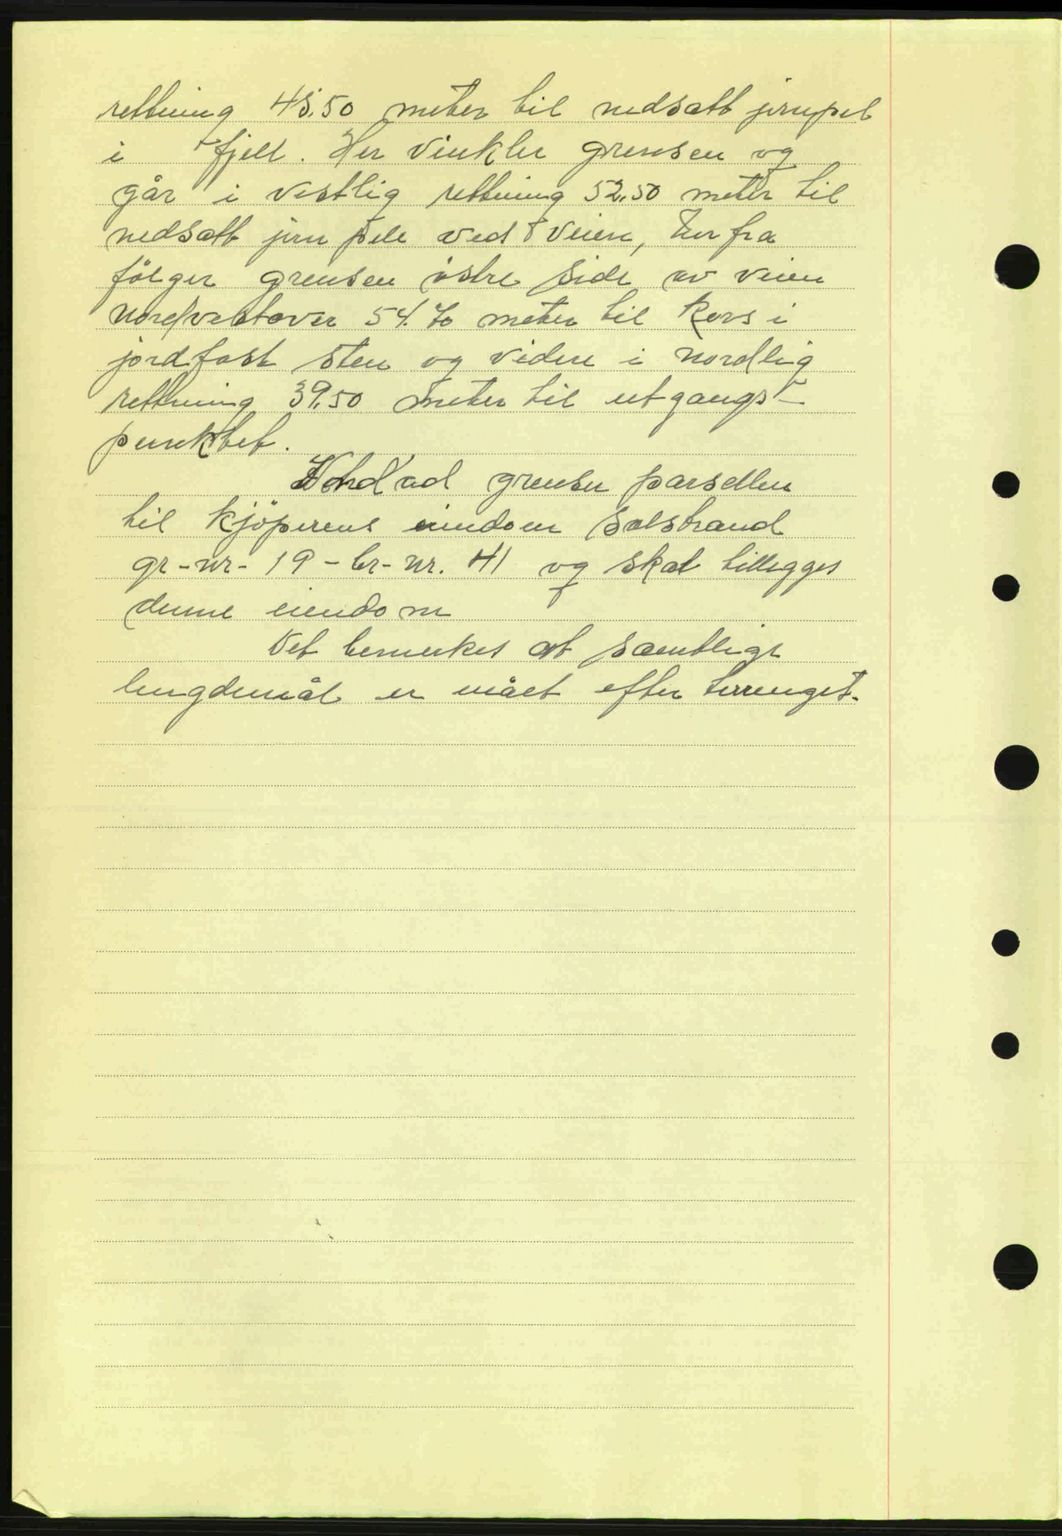 rettning 45.50 meter til nedsatt jernpel
i fjell. Her vinkler grensen og
går i vestlig rettning 52.50 meter til
nedsatt jern pele ved veien, herfra
følger grensen östre side av veien
nordvestover 54.70 meter til kors i
jordfast sten og videre i nordlig
rettning 39.50 meter til utgangs-
punktet.
Nord ad grenser parsellen
til kjöperens eiendom Solstrand
gr-nr- 19 - br-nr. 41 og skal tillegges
denne eiendom
Det bemerkes at samtlige
lengdemål er målt efter terrenget.